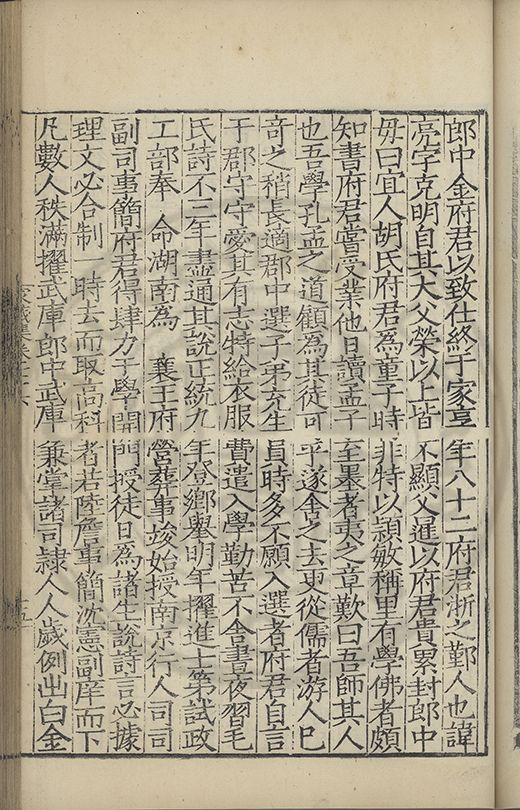 郎中金府君以致仕終于家享年八十二府君浙之鄞人也諱
亮字克明自其大父榮以上皆不顯父暹以府君貴累封郎中
母曰宜人胡氏府君為童子時非特以頴敏稱里有學佛者頗
知書府君嘗受業他日讀孟子至墨者夷之章歎曰吾師其人
也吾學孔孟之道顧為其徒可乎遂舍之去更從儒者游人已
奇之稍長適郡中選子弟充生員時多不願入選者府君自言
于郡守守愛其有志特給衣服費遣入學勤苦不舍晝夜習毛
氏詩不三年盡通其說正統九年登鄉舉明年擢進士第試政
工部奉 命湖南為 襄王府營葬事竣始授南京行人司司
副司事簡府君得肆力于學開門授徒日為諸生說詩言必據
理文必合制一時去而取高科者若陸詹事簡沈憲副庠而下
凡數人秩滿擢武庫郎中武庫兼掌諸司隷人人歲例出白金